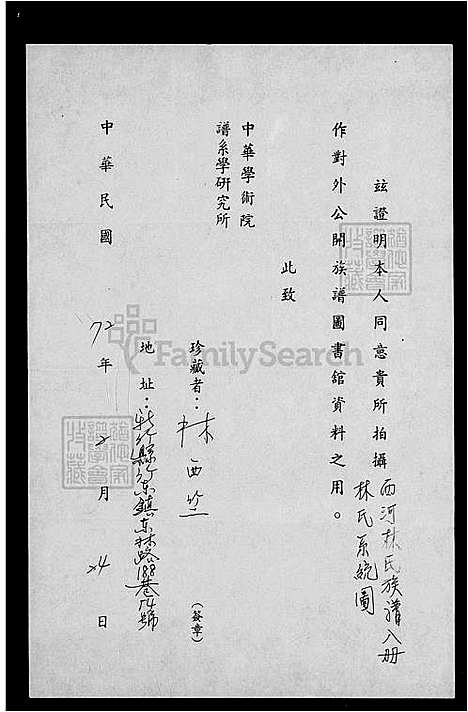 玆證明本人同意貴所拍攝西河林氏族譜入冊
林氏系統圖
作對外公開族譜圖書舘資料之用。
此致
中華學術院
譜系學研究所
珍藏者：林西竺
(簽章)
地址：新竹縣竹東鎮東林路188巷74號
中華民國72年2月24日
FamilySearch